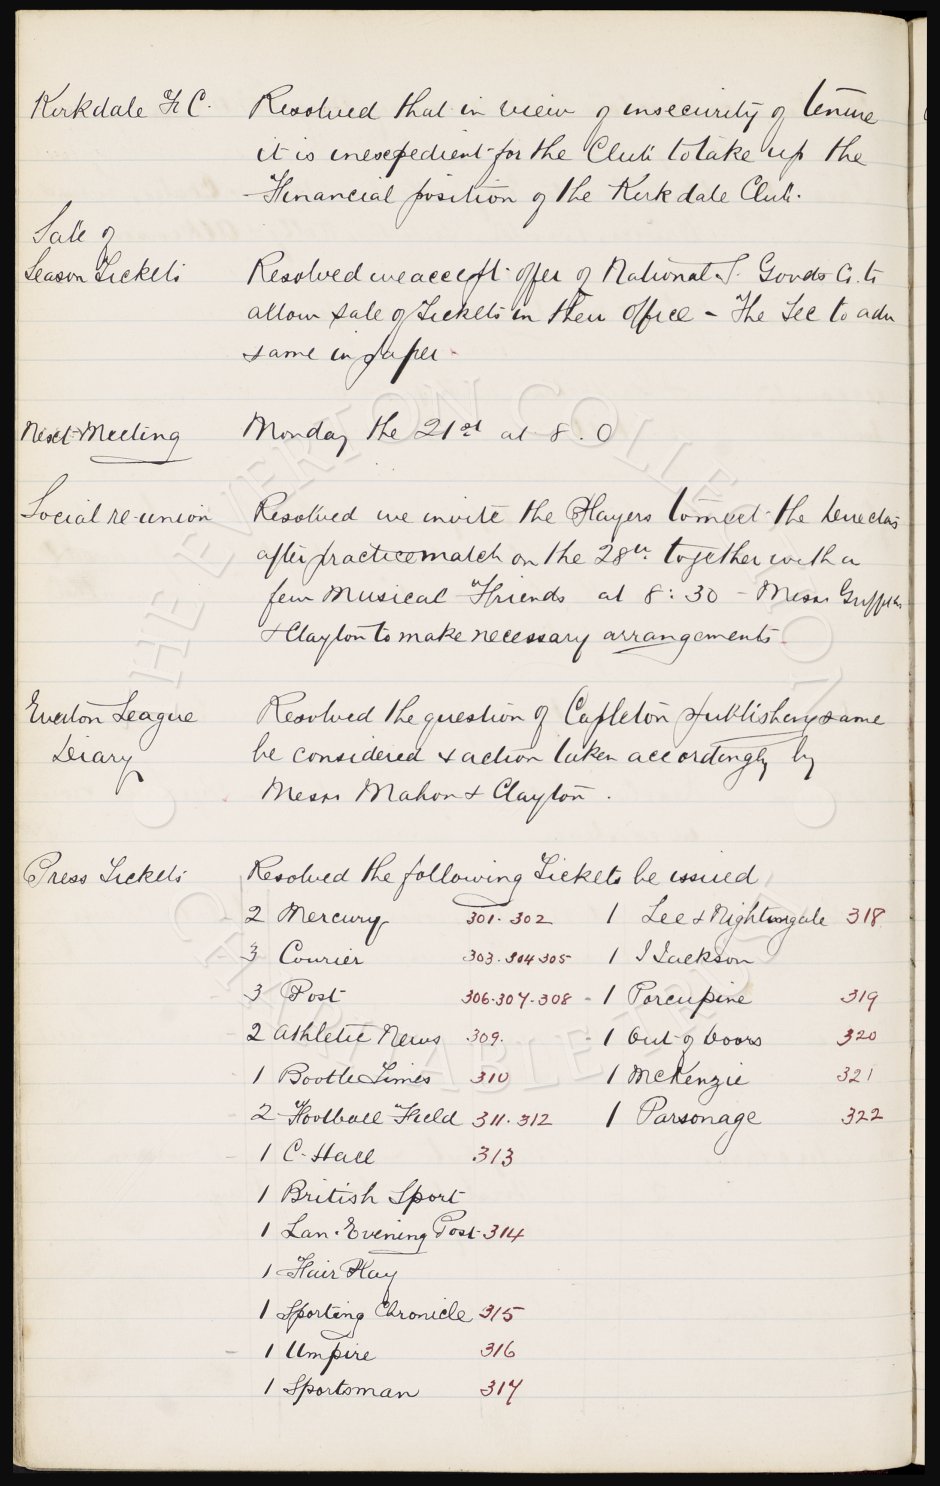 Kirkdale F. C. Resolved that in view of insecurity of tenure
it is inexpedient for the Club to take up the
Financial position of the Kirkdale Club.
Sale of
Season Tickets Resolved we accept offer of National S. Goods Co. to
allow sale of Tickets in their office - The Sec to adv
same in paper.
Next Meeting Monday the 21st at 8.0
Social re-union Resolved we invite the Players to meet the Directors
after practice match on the 28th together with a
few Musical Friends at 8:30 - Messrs Griffiths
& Clayton to make necessary arrangements.
Everton League Resolved the question of & publishing same
Diary be considered & action taken accordingly by
Messrs Mahon & Clayton.
Press Tickets Resolved the following Tickets be issued
2 Mercury 301. 302 1 Lee & Nightingale 318
3 Courier 303. 304 305 1 J Jackson
3 Post 306. 307. 308 - 1 Porcupine 319
2 Athletic News 309. - 1 Out of Doors 320
1 Bootle Times 310 1 McKenzie 321
2 Football Field 311. 312 1 Parsonage 322
1 C. Hall 313
1 British Sport
1 Lan. Evening Post 314
1 Fair Play
1 Sporting Chronicle 315
1 Umpire 316
1 Sportsman 317
THE EVERTON COLLECTION
CHARITABLE TRUST